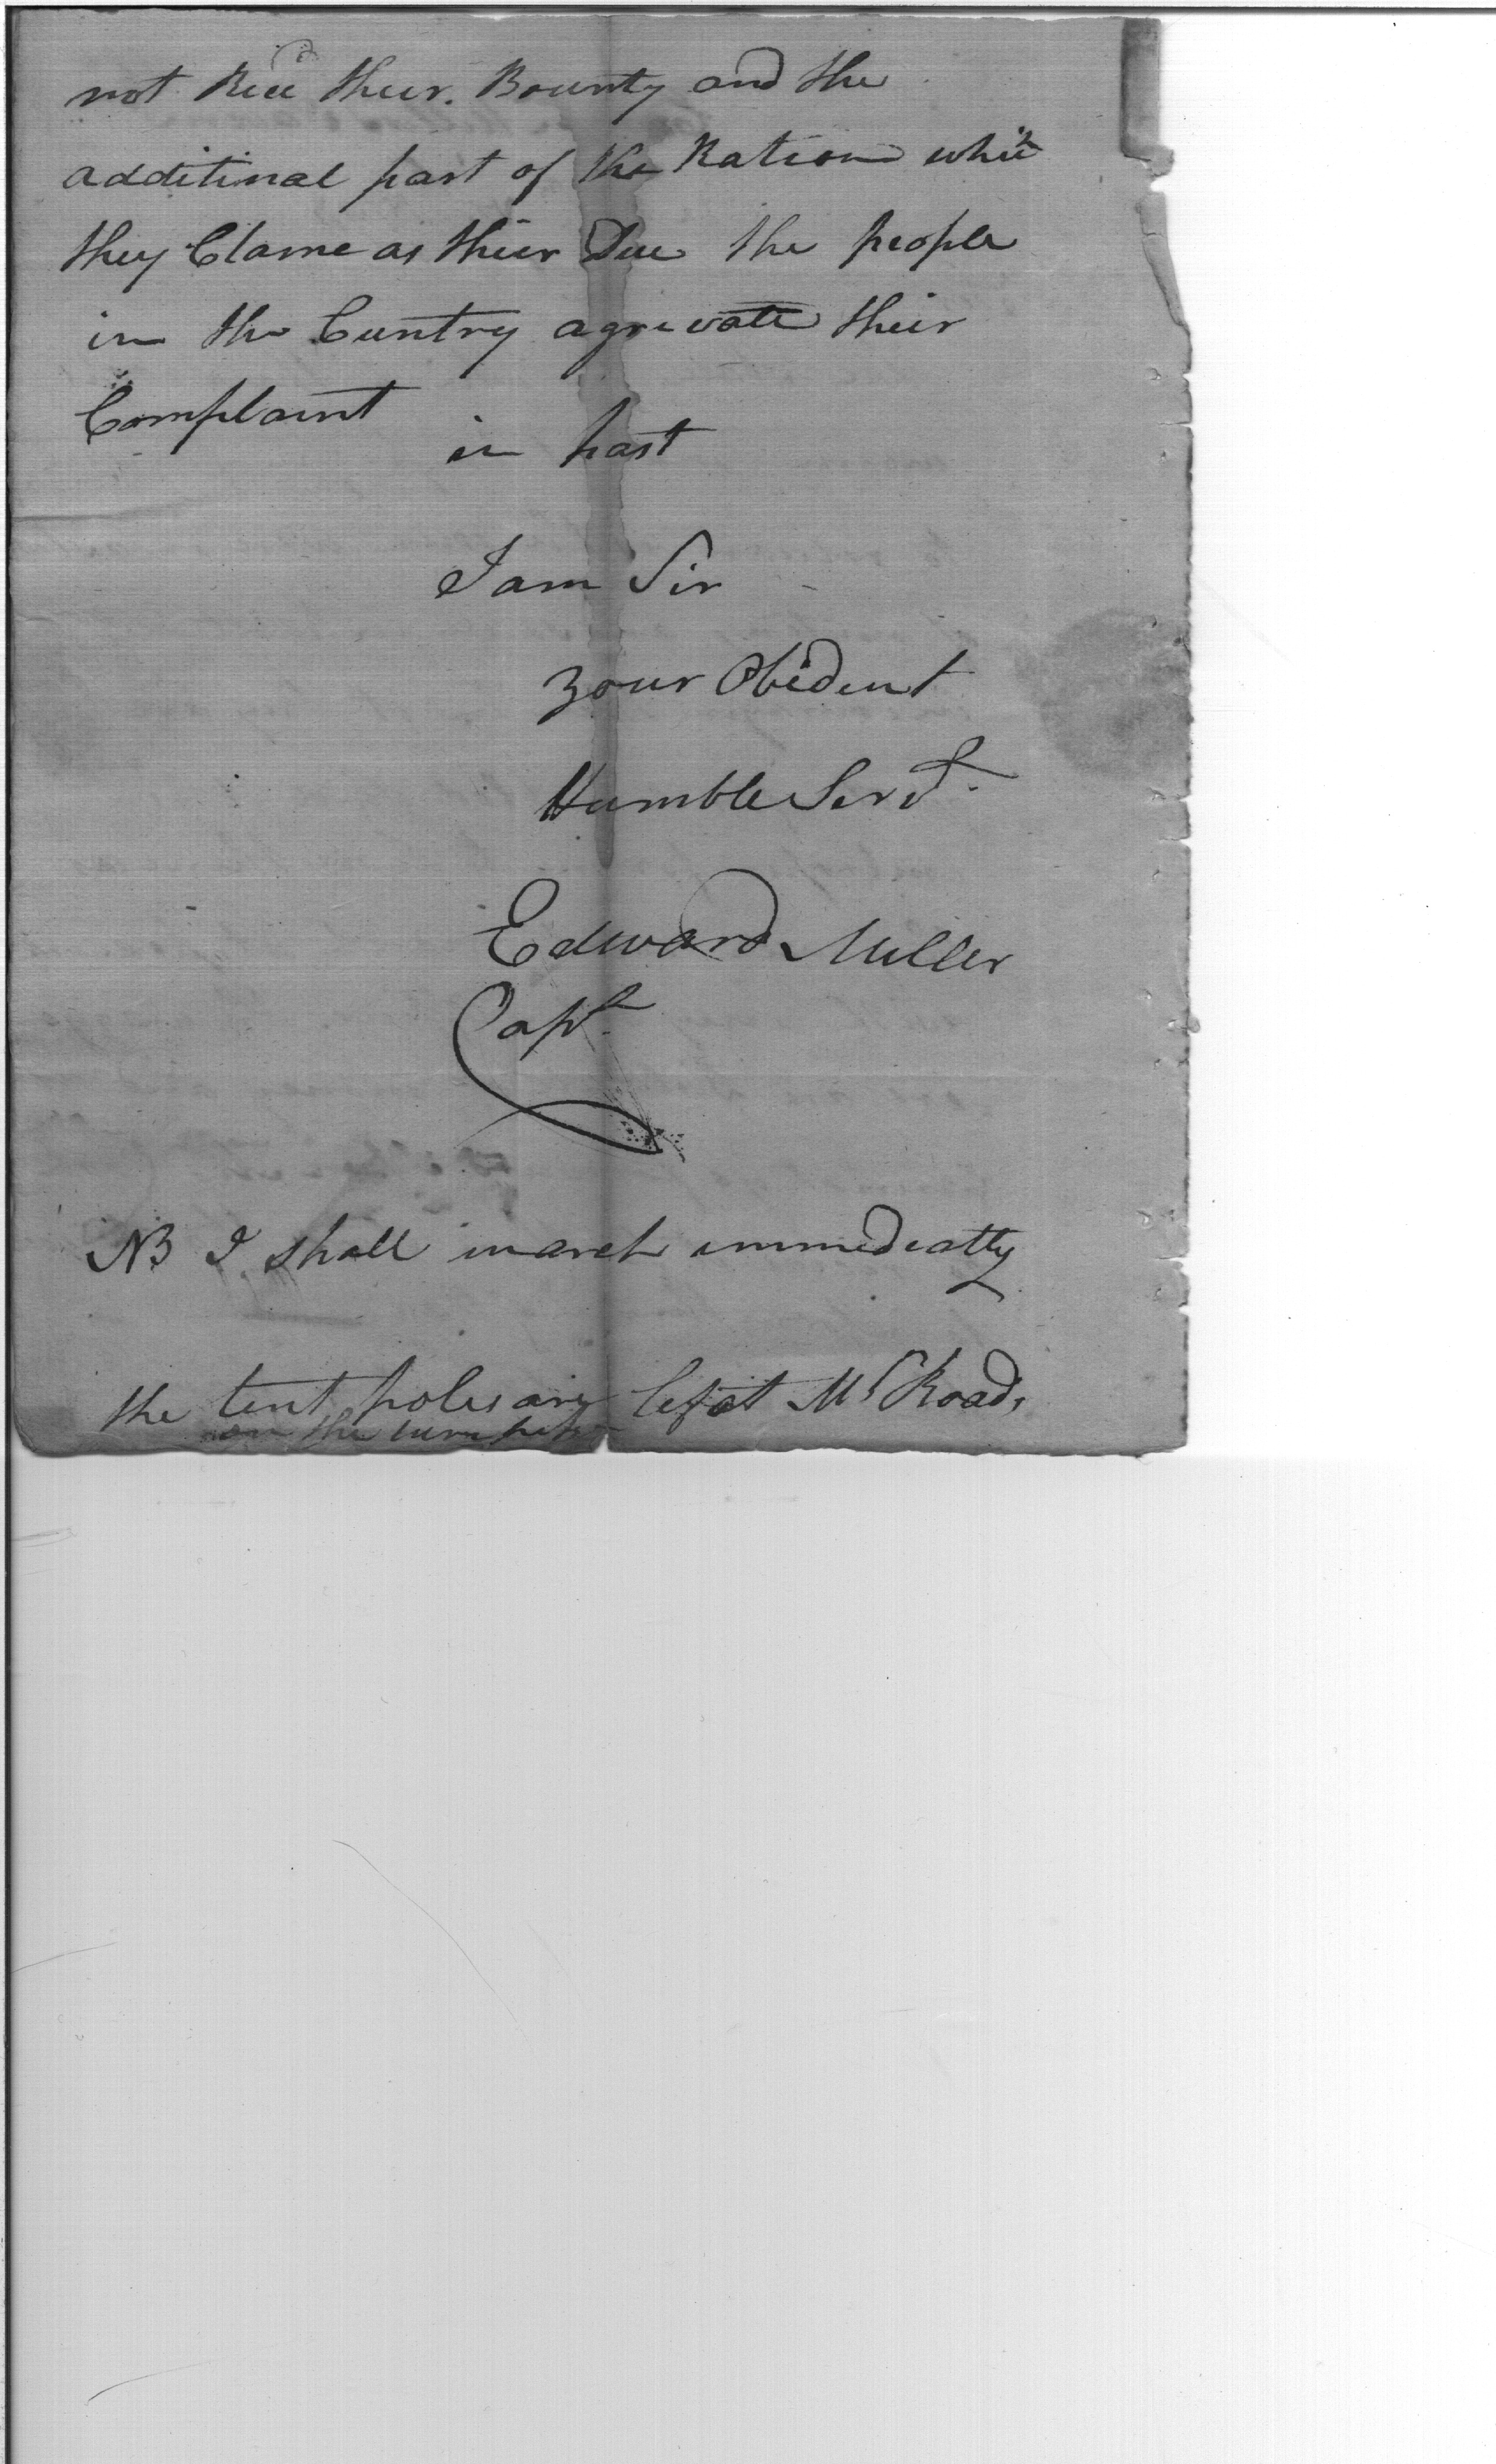 not Recd their Bounty and the
additinal part of the Ration which
they Clame as their Due the people
in the Cuntry agrevate their
Complaint
in hast
I am Sir
your Obedent
Humble Servt
Edward Miller
Capt
NB I shall march immediatly
the tent poles are left at Mr Roads
on the turnpike